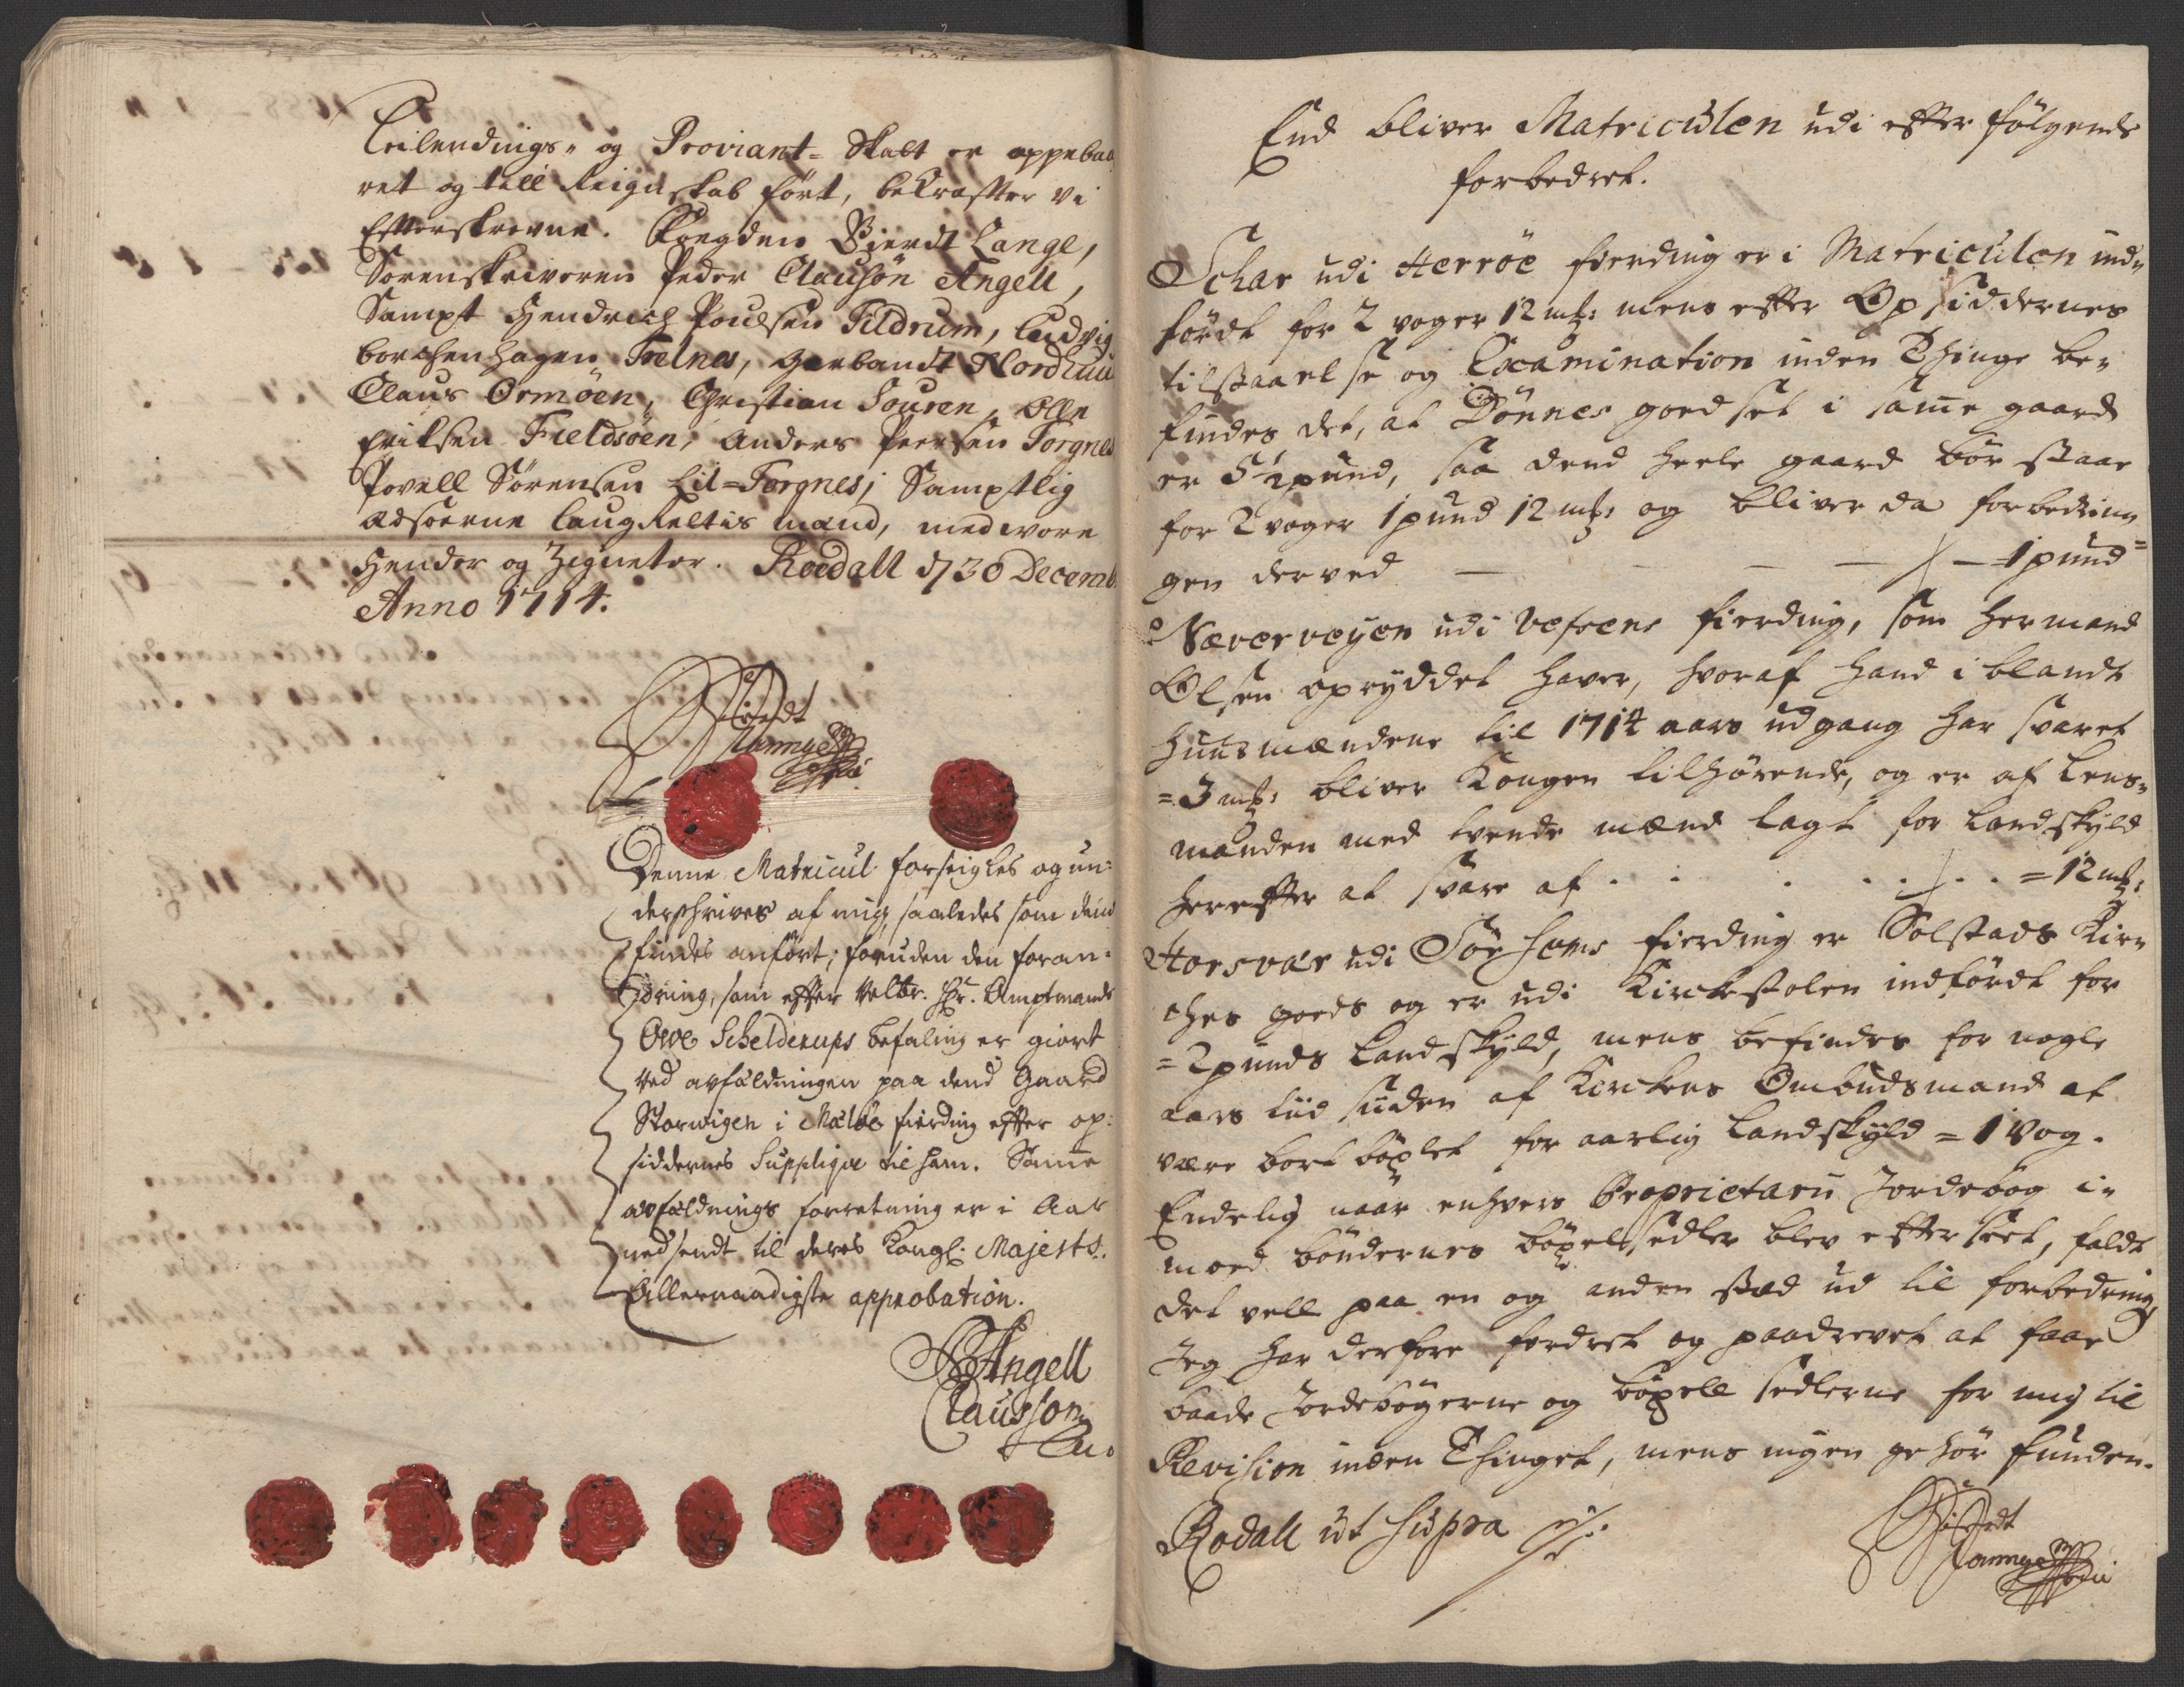 Leilendings- og Proviant- Skatt er oppebaa
ret og till Reignskab ført, bekræfter vi
Efterskrevne. Foegden Siverdt Lange,
Sorenskriveren Peder Clausøn Angell,
Sampt Hendrich Poulsen Tildrum, Ludvig
borchenhagen Trelnes, Gerbandt Nordhuu
Claus Ormøen, Christian Souren, Olle
Eriksen Fieldsøen, Anders Peersen Torgnes
Povell Sørensen Lil-Torgnes; Samptlig
Edsoerne laugRettis mænd, med vore
Hender og Zigneter. Roedall d 30 Decemb
Anno 1714.
Siverdt
Lannge
Denne Matricul forseigles og un-
derschrives af mig, saaledes som dend
findes anført; foruden den foran-
dring, som effter Velbr. Hr. Amptmands
Ove Schelderups befaling er giort
ved avfældningen paa dend Gaard
Storwigen i Mæløe fierding effter op-
siddernes Supplique til ham. Samme
avfældnings forretning er i Aar
nedsendt til deres Kongl. Majests.
Allernaadigste approbation.
PAngell
Clausson
End bliver Matriculen udi effterfølgende
forbedret.
Schar udi Herrøe fierding er i Matriculen ind-
førdt for 2 voger 12 mk: mens effter Opsiddernes
tilstaaelse og Examination inden Thinge be-
findes det, at Dønnes goedset i samme gaard
er 5½ pund, saa dend heele gaard bør staae
for 2 voger 1 pund 12 mk: og bliver da forbedrin-
gen derved — — — — 1 pund
Næverveyen udi Vefsens fierding, som Hermand
Olsen opryddet haver, hvoraf hand i blandt
huusmændene til 1714 aars udgang har svaret
= 3 mk: bliver Kongen tilhørende, og er af Lens-
manden med tvende mænd lagt for Landskyld
hereffter at svare af . . . . . . = 12 mk:
Horsvær udi Sørhoms fierding er Solstads Kir-
ches goeds og er udi Kirkestolen indførdt for
= 2 punds Landskyld, mens befindes for nogle
aars tiid siiden af Kirkens Ombudsmand at
være bort bøxlet for aarlig Landskyld = 1 Vog.
Endelig naar enhvers Proprietarii Jordebog i-
moed bøndernes bøxelsedler blev effterseet, faldt
det vell paa en og anden stæd ud til forbedring,
Jeg har derfore fordret og paadrevet at faae
baade Jordebøgerne og bøxell sedlerne for mig til
Revision inden Thinget, mens ingen gehør funden.
Rodall ut supra
Siverdt
Lannge